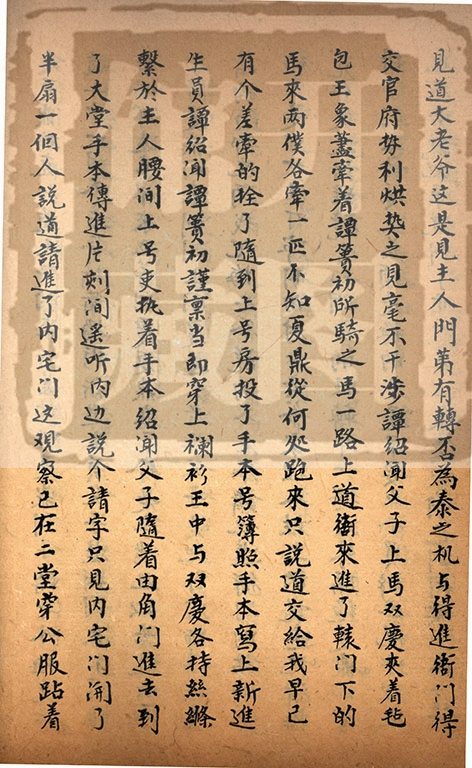 見道大老爷这是見主人門第有轉否為泰之机与得進衙门得
交官府势利烘势之見毫不干涉譚绍闻父子上馬双慶夹着毡
包王象藎牵着譚簣初所騎之馬一路上道衙來進了轅门下的
馬來两僕各牵一匹不知夏鼎從何处跑来只説道交給我早已
有个差牵的拴了隨到上号房投了手本号簿照手本寫上新進
生員譚紹闻譚簣初謹禀当即穿上襴衫王中与双慶各持絲縧
繫於主人腰间上号吏执着手本绍闻父子隨着由角门進去到
了大堂手本傳進片刻间遥听内边説个請字只見内宅门開了
半扇一個人説道請進了内宅门这观察已在二堂穿公服跕着